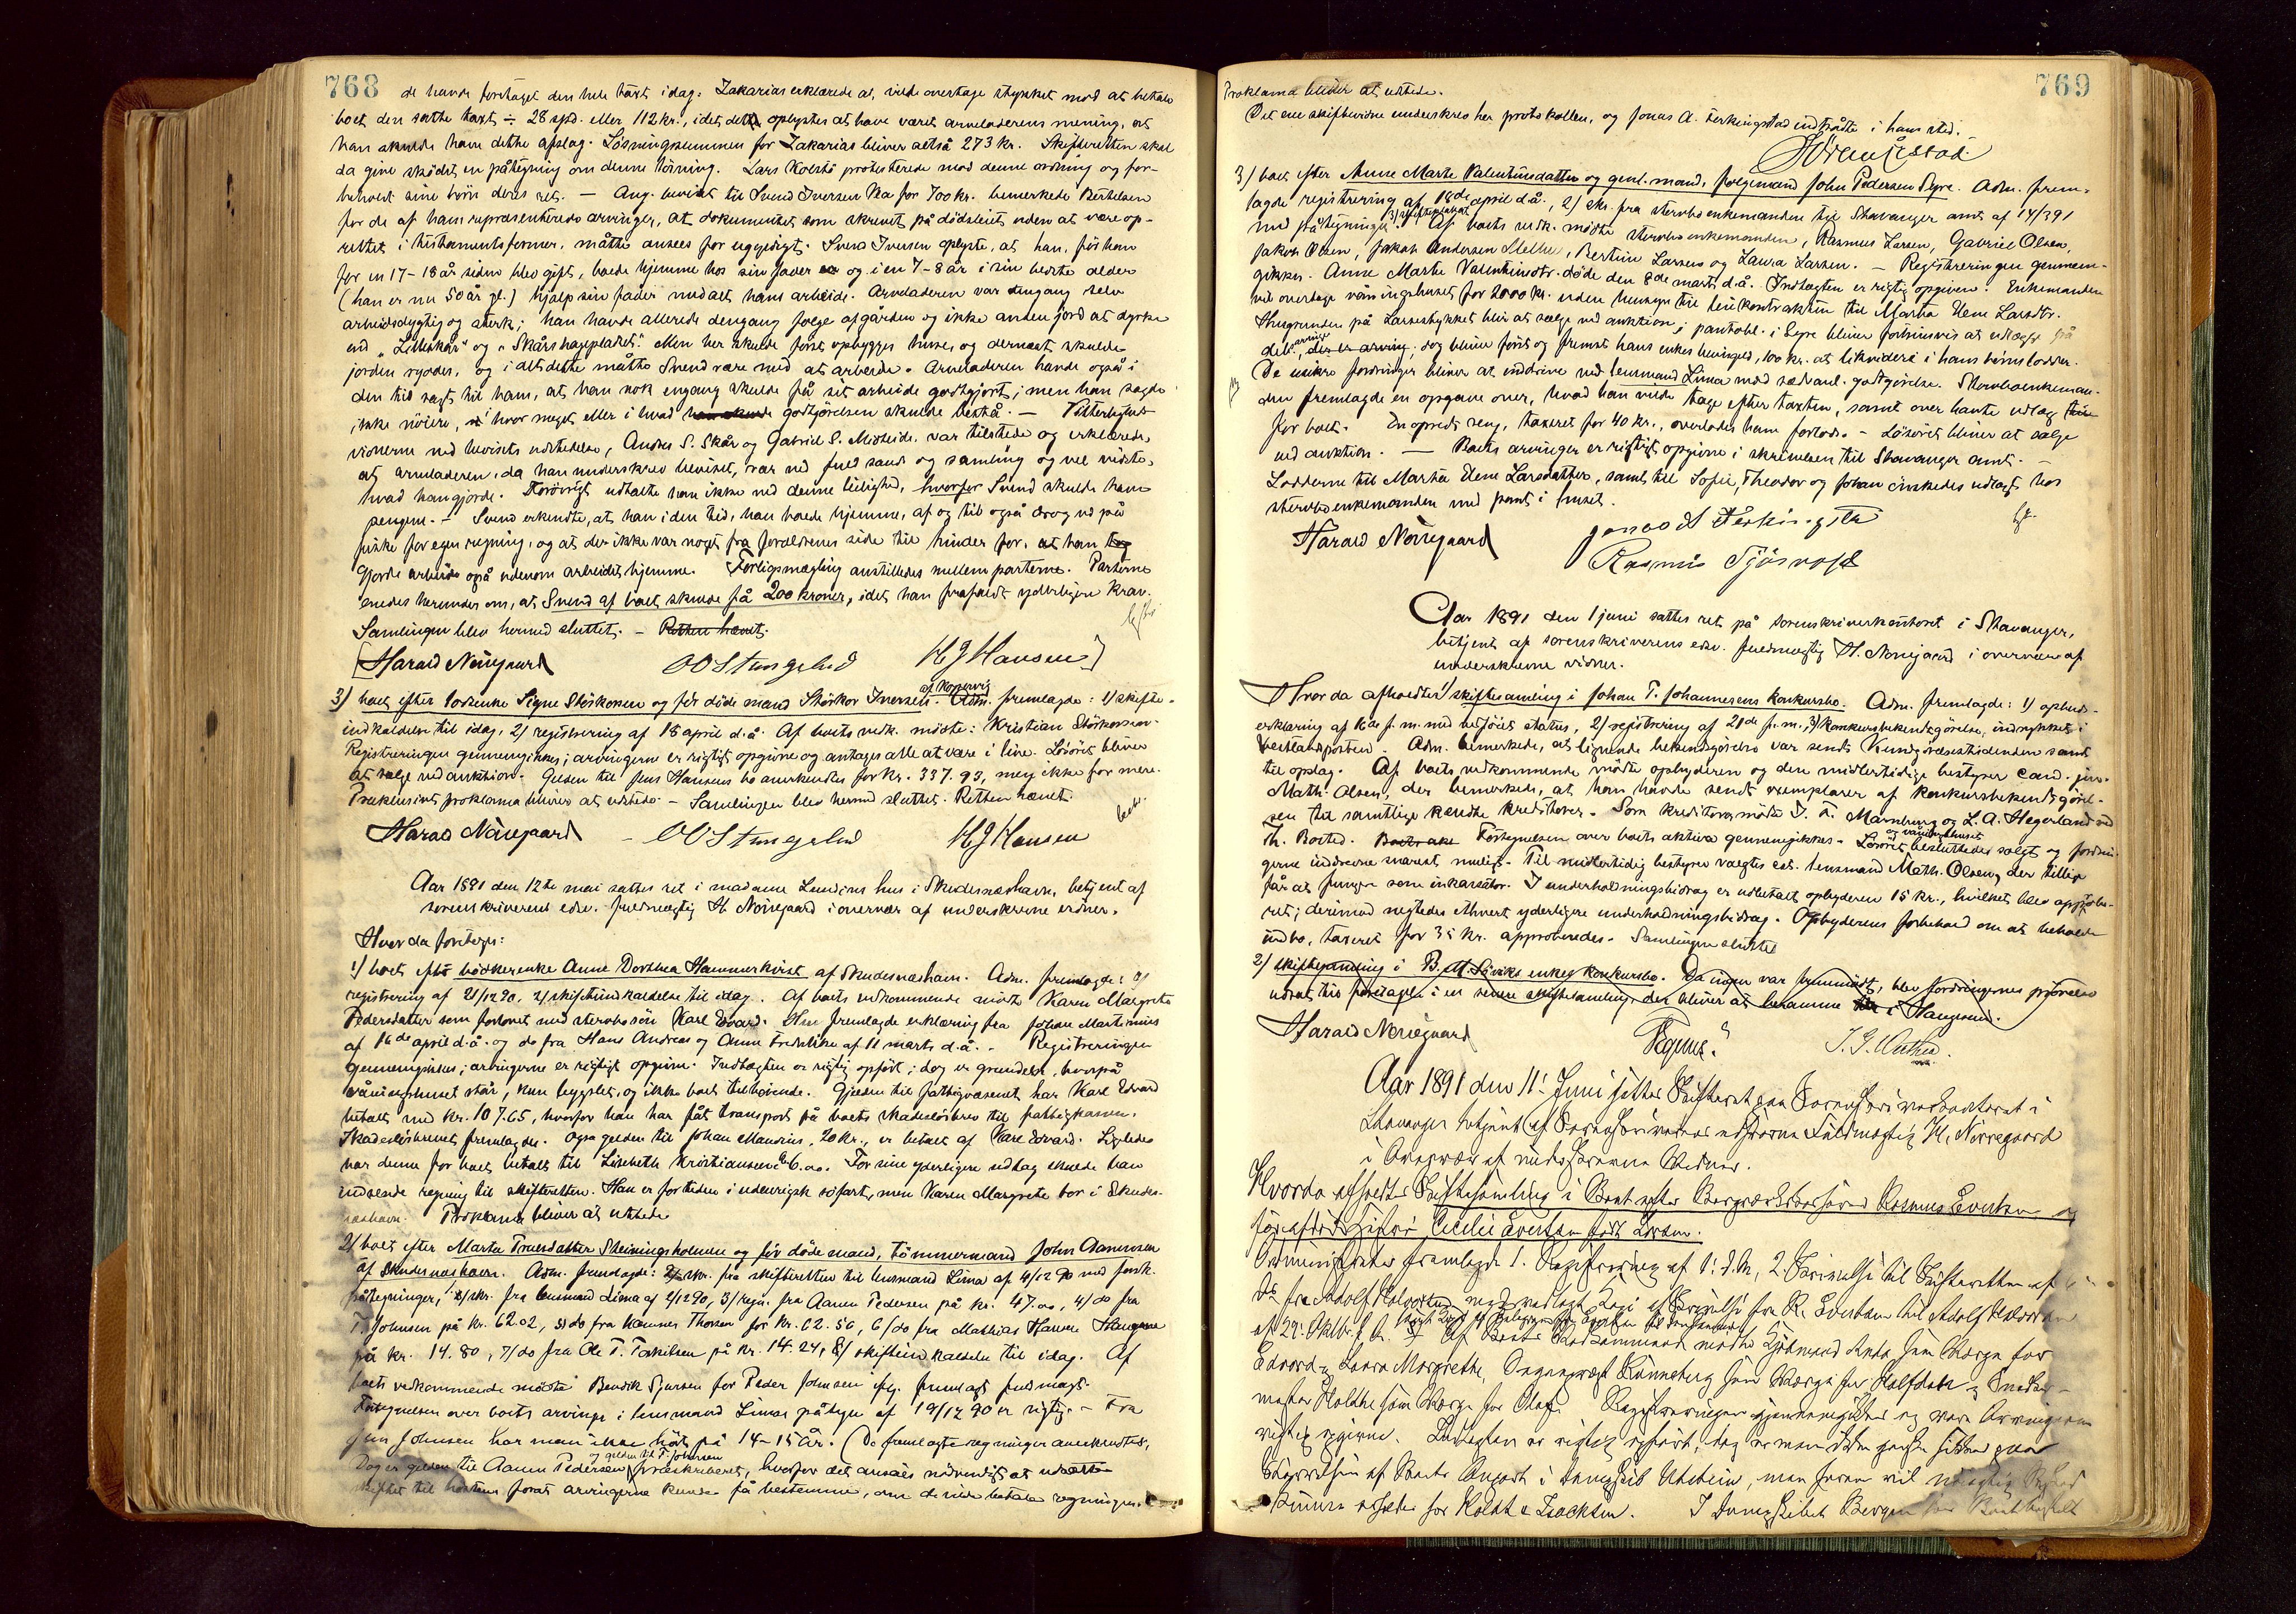 768
de havde foretaget den hele taxt idag. Zakarias erklærede at, vilde overtage stykket mod at betale
boet den satte taxt ÷ 28 spd. eller 112 kr., idet dette oplystes at have været arveladerens mening, at
han skulde have dette afslag. Løsningssummen for Zakarias bliver altså 273 kr. Skifteretten skal
da give skjødet en påtegning om denne løsning. Lars Kolstø protesterede mod denne ordning og for-
beholdt sine børn deres ret. — Ang. beviset til Svend Iversen Va for 700 kr. bemerkede Bertelsen
for de af ham repræsenterede arvinger, at dokumentet som skrevet på dødsleiet uden at være op-
rettet i testamentsformer, måtte ansees for ugyldigt. Svend Iversen oplyste, at han, før han
for en 17-18 år siden blev gift, boede hjemme hos sin fader og i en 7-8 år i sin bedste alder
(han er nu 50 år gl.) hjalp sin fader med alt hans arbeide. Arveladeren var dengang selv
arbeidsdygtig og sterk; han havde allerede dengang solgt afgården og ikke anden jord at dyrke
end "Lilleskår" og "Skårshagepladet". Men her skulde først opbygges huse, og dernæst skulde
jorden ryddes, og i alt dette måtte Svend være med at arbeide. Arveladeren havde også i
den tid sagt til ham, at han nok engang skulde få sit arbeide godtgjort; men han sagde
ikke nøiere, hvor meget eller i hvad godtgørelsen skulde bestå. — Vitterligheds-
vidnerne ved bevisets udstedelse, Andres S. Skår og Gabriel S. Misteide var tilstede og erklærede,
at arveladeren, da han underskrev beviset, var ved fuld sands og samling og vel vidste,
hvad han gjorde. Forøvrigt udtalte han ikke ved denne leilighed, hvorfor Svend skulde have
pengene. — Svend erkendte, at han i den tid, han boede hjemme, af og til også drog ud på
fiske for egen regning, og at der ikke var noget fra forældrenes side til hinder for, at han
gjorde arbeide også udenom arbeidet hjemme. Forligsmægling anstilledes mellem parterne. Parterne
enedes herunder om, at Svend af boet skulde få 200 kroner, idet han frafaldt yderligere krav.
Samlingen blev hermed sluttet. — Retten hævet.
Harald Nørregaard OO Stangeland HJ Hansen
3) boet efter lodsenke Signe Størkorsen og før døde mand Størkor Iversen af Kopervig. Adm. fremlagde: 1) skifte-
indkaldelse til idag, 2) registrering af 18 april d.å. Af boets vedk. mødte: Kristian Størkorsen.
Registreringen gennemgikkes; arvingerne er rigtigt opgivne og antages alle at være i live. Løsøret bliver
at sælge ved auktion. Gjelden til Jens Hansens bo anerkendtes for kr. 337.93, men ikke for mere.
Præklusivt proklama bliver at udstede. — Samlingen blev hermed sluttet. Retten hævet.
Harald Nørregaard — OO Stangeland HJ Hansen
Aar 1891 den 12te mai sattes ret i madame Lundens hus i Skudesneshavn, betjent af
sorenskriverens edsv. fuldmægtig H. Nørregaard i overvær af underskrevne vidner.
Hvor da foretoges:
1) boet efter bødkerenke Anne Dorthea Hammerkvist af Skudesneshavn. Adm. fremlagde: 1)
registrering af 21/12 90, 2) skifteindkaldelse til idag. Af boets vedkommende mødte Karen Margrete
Pedersdatter som forlovet med stervbosøn Karl Edvard. Hun fremlagde erklæring fra Johan Martinius
af 16de april d.å. og do fra Hans Andreas og Anne Fredrikke af 11 marts d.å. — Registreringen
gennemgikkes; arvingerne er rigtigt opgivne. Indtægten er rigtig opført; dog er grunden, hvorpå
våningshuset står, kun bygslet, og ikke boet tilhørende. Gjelden til fattigvæsenet har Karl Edvard
betalt med kr. 107.65, hvorfor han har fåt transport på boets skadesløsbrev til fattigkassen.
Skadesløsbrevet fremlagdes. Også gælden til Johan Mandius, 20 kr., er betalt af Karl Edvard. Ligeledes
har denne for boet betalt til Lisebeth Kristiansen 6.00. For sine yderligere udlæg skulde han
indsende regning til skifteretten. Han er for tiden i udenrigsk søfart, men Karen Margrete bor i Skudes-
neshavn. Proklama bliver at udstede
2) boet efter Marta Truesdatter Steiningsholmen og før døde mand, tømmermand John Aanensen
af Skudesneshavn. Adm. fremlagde: 1) skr. fra skifteretten til lensmand Lima af 4/12 90 med forsk.
påtegninger, 2) skr. fra lensmand Lima af 2/12 90, 3) regn. fra Aanen Pedersen på kr. 47.00, 4) do fra
T. Johnsen på kr. 62.02, 5) do fra Hannes Thorsen for kr. 62.50, 6) do fra Mathias Hansen
på kr. 14.80, 7) do fra Ole T. Torkilsen på kr. 14.24, 8) skifteindkaldelse til idag. Af
boets vedkommende mødte Bendik Sjursen for Peder Johnsen iflg. fremlagt fuldmagt.
Fortegnelsen over boets arvinge i lensmand Limas påtegn. af 19/12 90 er rigtig. — Fra
Jens Johnsen har man ikke hørt på 14-15 år. (De fremlagte regninger anerkendtes,
dog er gælden til Aanen Pedersen og gælden til T. Johnsen præskriberet, hvorfor det ansåes nødvendigt at udsætte
skiftet til høsten forat arvingerne kunde få bestemme, om de vilde betale regningen.
769
Proklama bliver at udstede.
Det ene skiftevidne underskrev her protokollen, og Jonas A. Ferkingstad indtrådte i hans sted.
3) boet efter Anne Marte Valentinsdatter og genl. mand, følgemand John Pedersen Syre. Adm. frem-
lagde registrering af 18de april d.å., 2) skr. fra stervboenkemanden til Stavanger amt af 14/3 91
med påtegninger. 3) skifteplakat Af boets vedk. mødte stervboenkemanden, Rasmus Larsen, Gabriel Olsen,
Jakob Olsen, Jakob Andersen Stelle, Bertin Larsen og Laura Larsen. — Registreringen gennem-
gikkes. Anne Marte Valentinsdtr. døde den 8de marts d.å. Indtægten er rigtig opgiven. Enkemanden
vil overtage våningshuset for 2000 kr. uden hensyn til leiekontrakten til Marta Elene Larsdtr.
Husgrunden på Larsestykket blir at sælge ved auktion; pantobl. i Syre bliver fortrinsvis at udlægge på
dele arving, der er arving; dog bliver først og fremst hans enkes tilgodehavende, 100 kr. at likvidere i hans børns lodder.
De usikre fordringer bliver at inddrive ved lensmand Lima mod sædvanl. godtgørelse. Stervboenkeman-
den fremlagde en opgave over, hvad han vilde tage efter taxten, samt over havte udlæg
for boet. En opredt seng, taxeret for 40 kr., overlodes ham forlods. — Løsøret bliver at sælge
ved auktion. — Boets arvinger er rigtigt opgivne i skrivelsen til Stavanger amt. —
Lodderne til Marta Elene Larsdatter, samt til Sofie, Theodor og Johan ønskedes udlagt hos
stervboenkemanden med pant i huset.
Harald Nørregaard Jonas A Ferkingsta
Rasmus Tjøsvold
Aar 1891 den 1 juni sattes ret på sorenskriverkontoret i Stavanger,
betjent af sorenskriverens edsv. fuldmægtig H. Nørregaard i overvær af
underskrevne vidner.
Hvor da afholdtes 1) skiftesamling i Johan T. Johannesens konkursbo. Adm. fremlagde: 1) opbuds-
erklæring af 16de f.m. med vedføiet status, 2) registrering af 21de f.m., 3) konkursbekendtgørelse, indrykket i
Vestlandsposten. Adm. bemerkede, at lignende bekendtgørelse var sendt Kundgørelsestidenden samt
til opslag. Af boets vedkommende mødte opbyderen og den midlertidige bestyrer cand. jur.
Math. Olsen, der bemerkede, at han havde sendt exemplarer af konkursbekendtgørel-
sen til samtlige kendte kreditorer. Som kreditorer mødte J. F. Marnburg og L. A. Hegerland ved
Th. Borsted. Fortegnelsen over boets aktiva gennemgikkes. Løsøret og våningshuset besluttedes solgt og fordrin-
gerne inddrevne snarest mulig. Til midlertidig bestyrer valgtes cst. lensmand Math. Olsen, der tillige
får at fungere som inkassator. I underholdningsbidrag er udbetalt opbyderen 15 kr., hvilket blev approbe-
ret; derimod negtedes ethvert yderligere underholdningsbidrag. Opbyderens forbehold om at beholde
indbo, taxeret for 35 kr. approberedes. Samlingen sluttet
2) skiftesamling i B. M. Løviks enkes konkursbo. Da ingen var fremmødt, blev fordringernes prøvelse
udsat til foretagelse i en senere skiftesamling, der bliver at beramme i Haugesund.
Harald Nørregaard
Aar 1891 den 11. Juni sattes Skifteret paa Sorenskriverkontoret i
Stavanger betjent af Sorenskriverens edsvorne Fuldmægtig H. Nørregaard
i Overvær af underskrevne Vidner.
Hvorda afholdtes Skiftesamling i Boet efter Bergværksbestyrer Rasmus Evertsen og
før afdøde Hustru Cecilie Evertsen født Larsen.
Administrator fremlagde 1. Registrering af 1. d.M, 2. Skrivelse til Skifteretten af
Do fra Adolf Halvorsen med vedlagt Kopi af Skrivelse fra R. Evertsen til Adolf Halvorsen
af 29. Septbr. f. A. Af Boets Vedkommende mødte Kjøbmand som Værge for
Edvard og Laura Margrethe, Ønneberg som Værge for Halfdan og
Holdhe som Værge for Olaf. Registreringen gjennemgikkes og vare Arvingerne
rigtig opgivne. Indtægten er rigtig opført, dog
af Boets Anpart i Dampskib Utstein, men
for Holdt & Isachsen. I Dampskibet Bergen